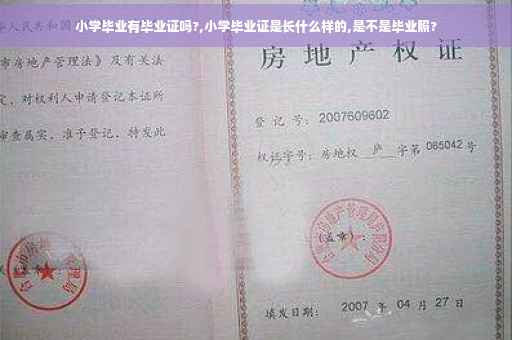 小学毕业有毕业证吗?,小学毕业证是长什么样的,是不是毕业照?
华人民共和国
市房地产管理法》及有关法
定,对权利人申请登记本证所
审查属实,准予登记,特发此
房地产权证
登记号:2007609602
权证字号:房地权 庐 字第 085042 号
(盖章):
填发日期: 2007 年 04 月 27 日